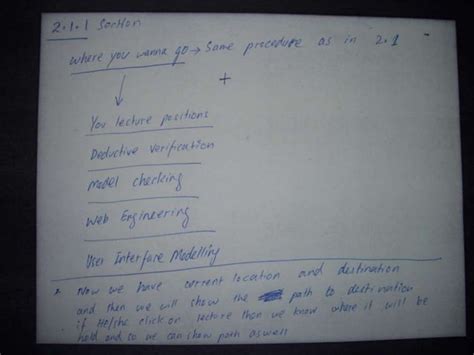 2.1.1 Section
where you wanna go → Same procedure as in 2.1
+
You lecture positions
Deductive verification
Model checking
Web Engineering
User Interface Modelling
* Now we have current location and destination
and then we will show the path to destination
if He/she click on lecture then we know where it will be
held and so we can show path aswell